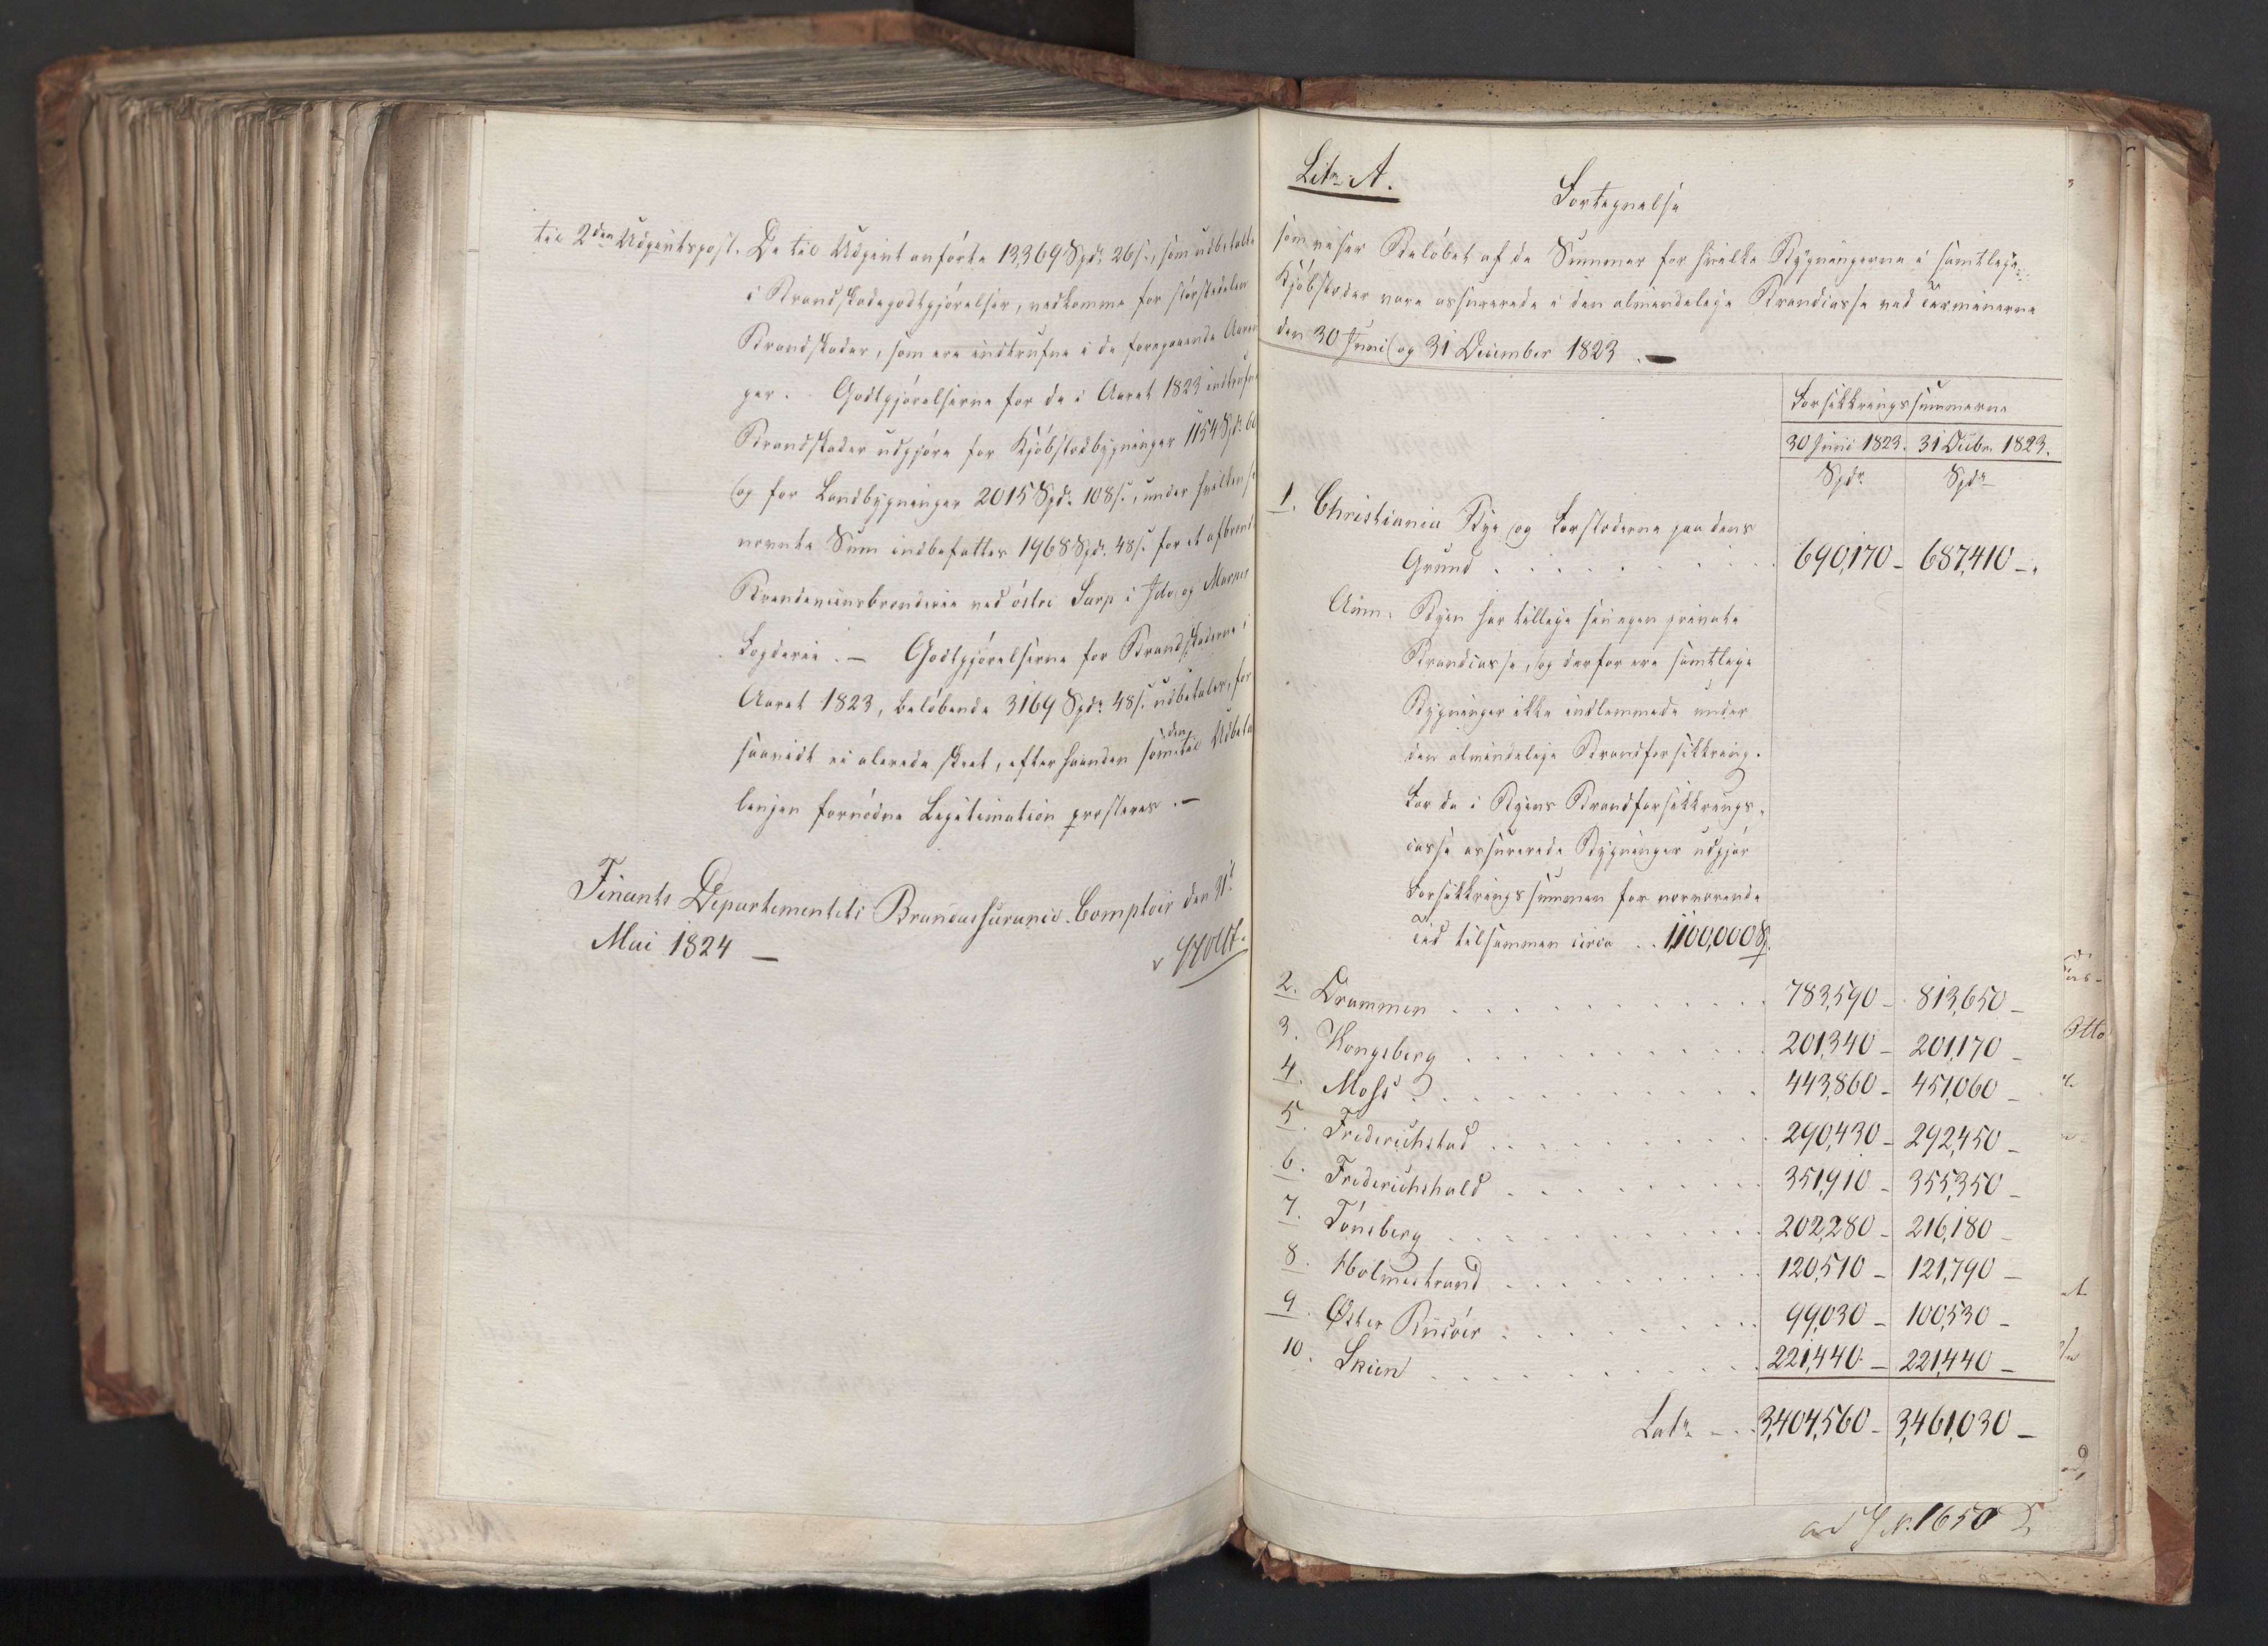 til 2den Udgiftspost. De til Udgift anførte 13,369 Spdr. 26 s., som udbetalte
i Brandskadegodtgjørelser, vedkomme for størstedelen
Brandskader, som ere indtrufne i de foregaaende Aarin
ger. Godtgjørelserne for de i Aaret 1823 indtrufne
Brandskader udgjøre for Kjøbstædbygninger 1154 Spdr. 60
og for Landbygninger 2015 Spdr. 108 s., under hvilken sidst
nævnte Sum indbefattes 1968 Spdr. 48 s. for et afbrændt
Brændeviinsbrænderie ved østre Sarp i Ide og Markers
Fogderie. — Godtgjørelserne for Brandskaderne i
Aaret 1823, beløbende 3169 Spdr. 48 s. udbetales, for
saavidt ei alerede skeet, efterhaanden som den til Udbeta
lingen fornødne Legitimation præsteres. —
Finants Departementets Brandassurance-Comptoir den 31te
Mai 1824 —
Holst.
Litr. A.
Fortegnelse
som viser Beløbet af de Summer for hvilke Bygningerne i samtlige
Kjøbstæder vare assurerede i den almindelige Brandcasse ved Terminerne
den 30 Juni og 31 December 1823. —
Forsikkringssummerne
30 Juni 1823. 31 Decbr. 1823.
Spdr. Spdr.
1. Christiania Bye og Forstæderne paa dens
Grund . . . 690,170 - 687,410 -
Anm. Byen har tillige sin egen private
Brandcasse, og derfor ere samtlige
Bygninger ikke indlemmede under
den almindelige Brandforsikkring.
For de i Byens Brandforsikkrings-
casse assurerede Bygninger udgjør
Forsikkringssummen for nærværende
Tid tilsammen circa . . 1,100,000 Sp.
2. Drammen . . . 783,590 - 813,650 -
3. Kongsberg . . . 201,340 - 201,170 -
4. Moss . . . 443,860 - 451,060 -
5. Friderichstad . . . 290,430 - 292,450 -
6. Friderichshald . . . 351,910 - 355,350 -
7. Tønsberg . . . 202,280 - 216,180 -
8. Holmestrand . . . 120,510 - 121,790 -
9. Øster Riisøer . . . 99,030 - 100,530 -
10. Skien . . . 221,440 - 221,440 -
Latr. . . 3,404,560 - 3,461,030 -
ad J. N. 1650